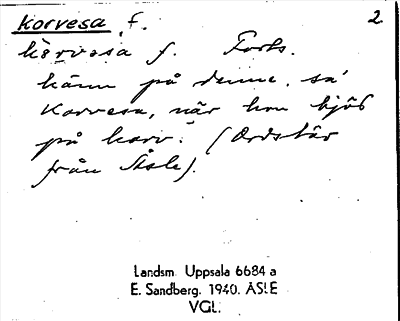 korvesa f. 2
korvesa f. Forts.
känn på denne, sa'
Korvesa, når hon bjöd
på korv. (Ordstäv
från Åsle).
Landsm. Uppsala 6684 a
E. Sandberg. 1940. ÅSLE
VGL.